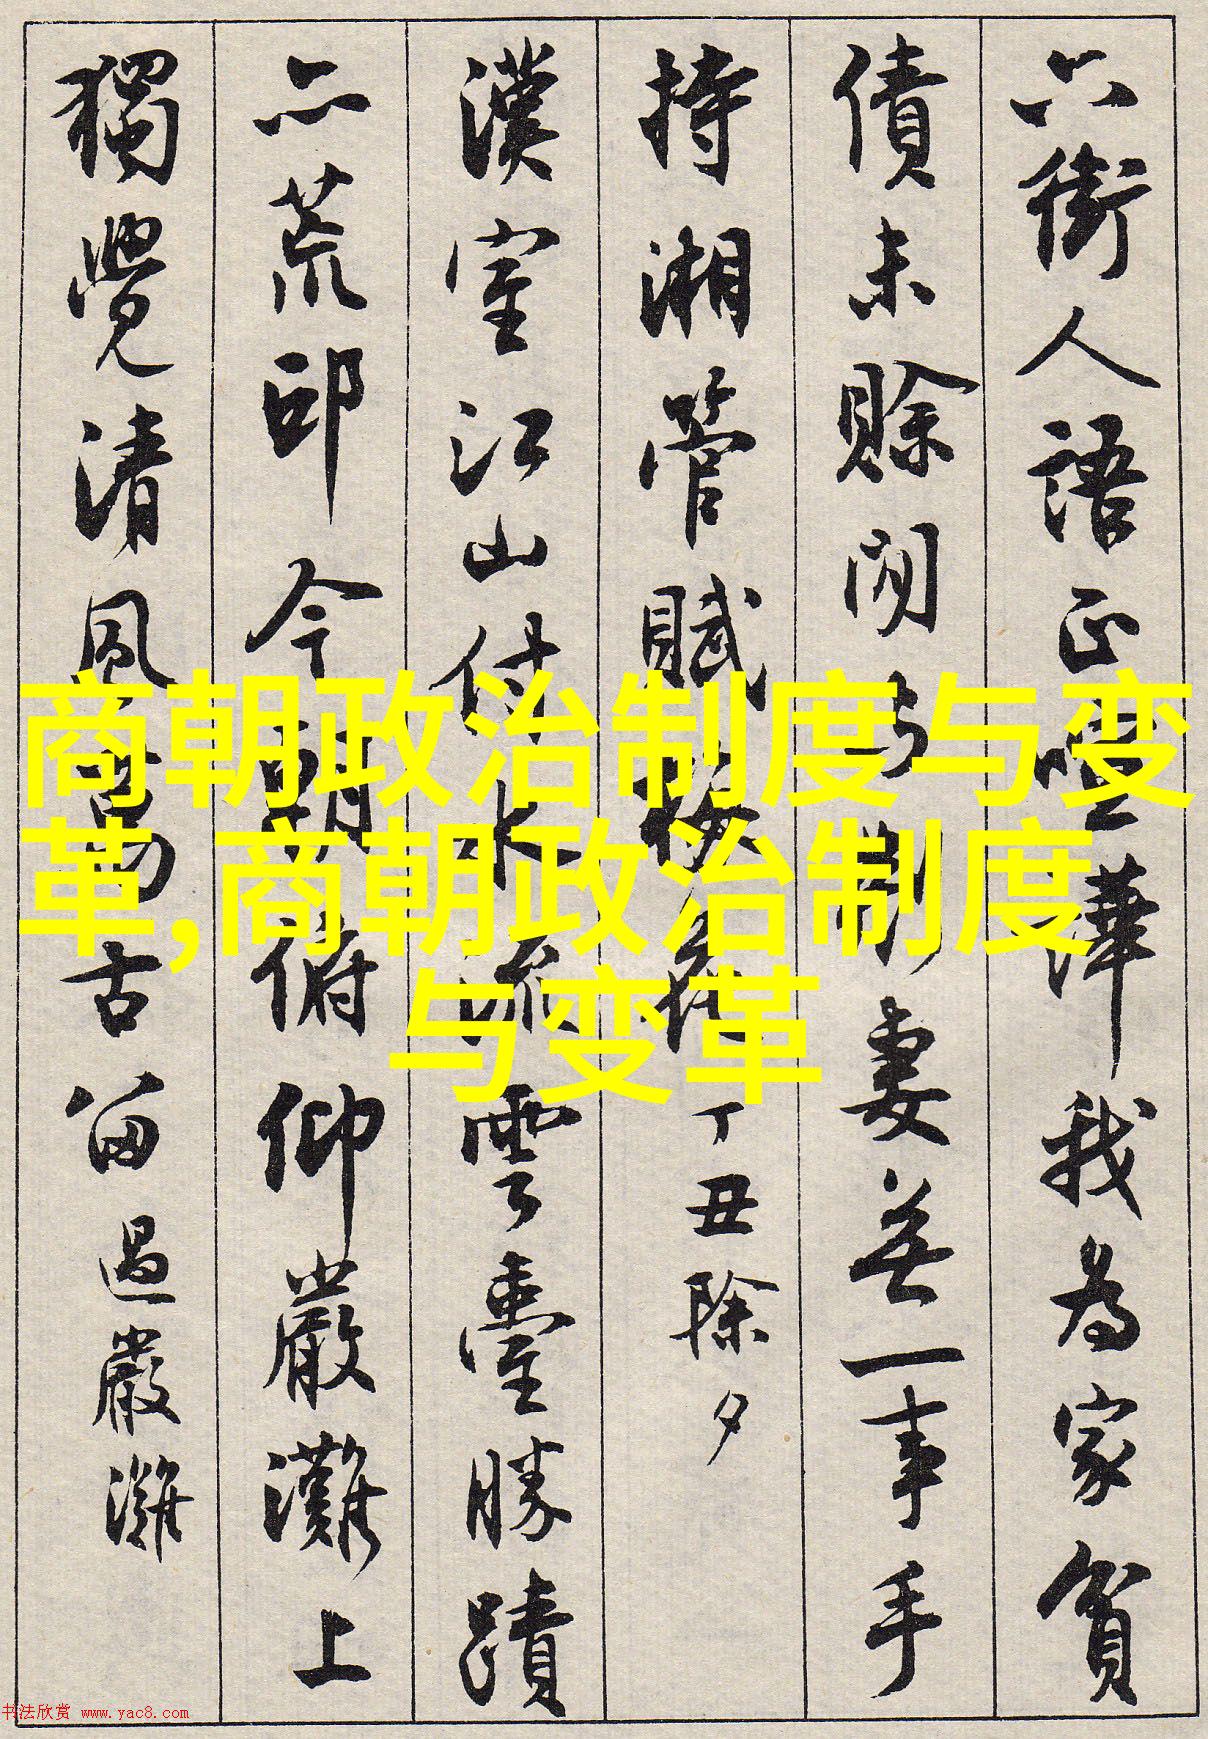 六街人語正喧譁我為家貧
債未賒閒与荆妻無一事手
持湘管賦梅花丁丑除夕
漢室江山付水流雲臺勝蹟
亦荒邱今朝俯仰嚴灘上
獨覺清風萬古留過嚴灘
商朝政治制度与变
革,商朝政治制度
与变革
书法欣赏 www.yac8.com